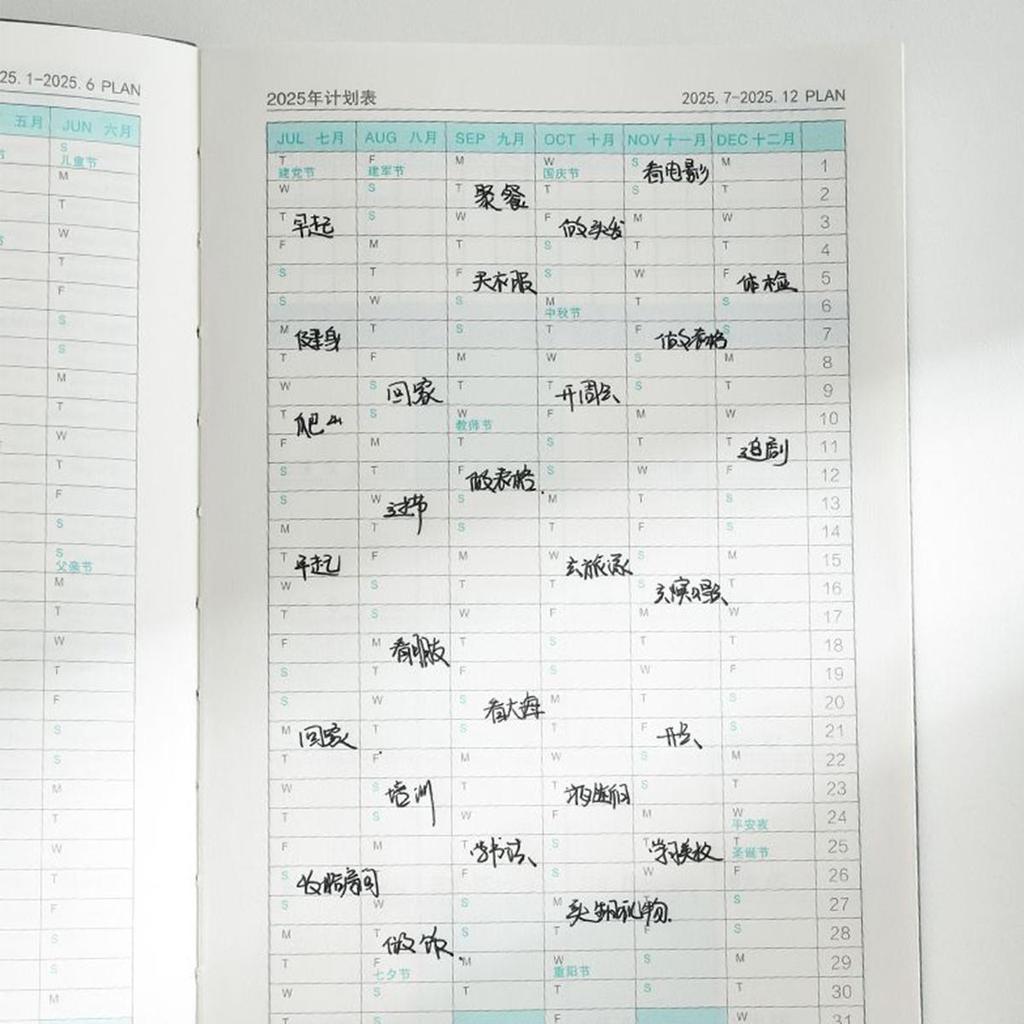 25.1-2025.6 PLAN
五月 JUN 六月
S
儿童节
M
T
W
T
F
S
S
M
T
W
T
F
S
S
父亲节
M
T
W
T
F
S
S
M
T
W
T
F
S
S
M
2025年计划表 2025.7-2025.12 PLAN
JUL 七月 AUG 八月 SEP 九月 OCT 十月 NOV 十一月 DEC 十二月
T 建党节 F 建军节 M W 国庆节 S 看电影 M 1
W S T 聚餐 T S T 2
T 早起 S W F 做头发 M W 3
F M T S T T 4
S T F 买衣服 S W F 体检 5
S W S M 中秋节 T S 6
M 健身 T S T F 做表格 S 7
T F M W S M 8
W S 回家 T T 开周会 S T 9
T 爬山 S W 教师节 F M W 10
F M T S T T 追剧 11
S T F 做表格. S W F 12
S W 过节 S M T S 13
M T S T F S 14
T 早起 F M W 去旅游 S M 15
W S T T S 去演唱会 T 16
T S W F M W 17
F M 看朋友 T S T T 18
S T F S W F 19
S W S 看大海 M T S 20
M 回家 T S T F 开会 S 21
T F M W S M 22
W S 培训 T T S T 23
T S W F M W 平安夜 24
F M T 学书法 S T 学习美妆 T 圣诞节 25
S 收拾房间 T F S W F 26
S W S M 买生日礼物. T S 27
M T 做饭. S T F S 28
T F 七夕节 M W 重阳节 S M 29
W S T T S T 30
T S F M W 31